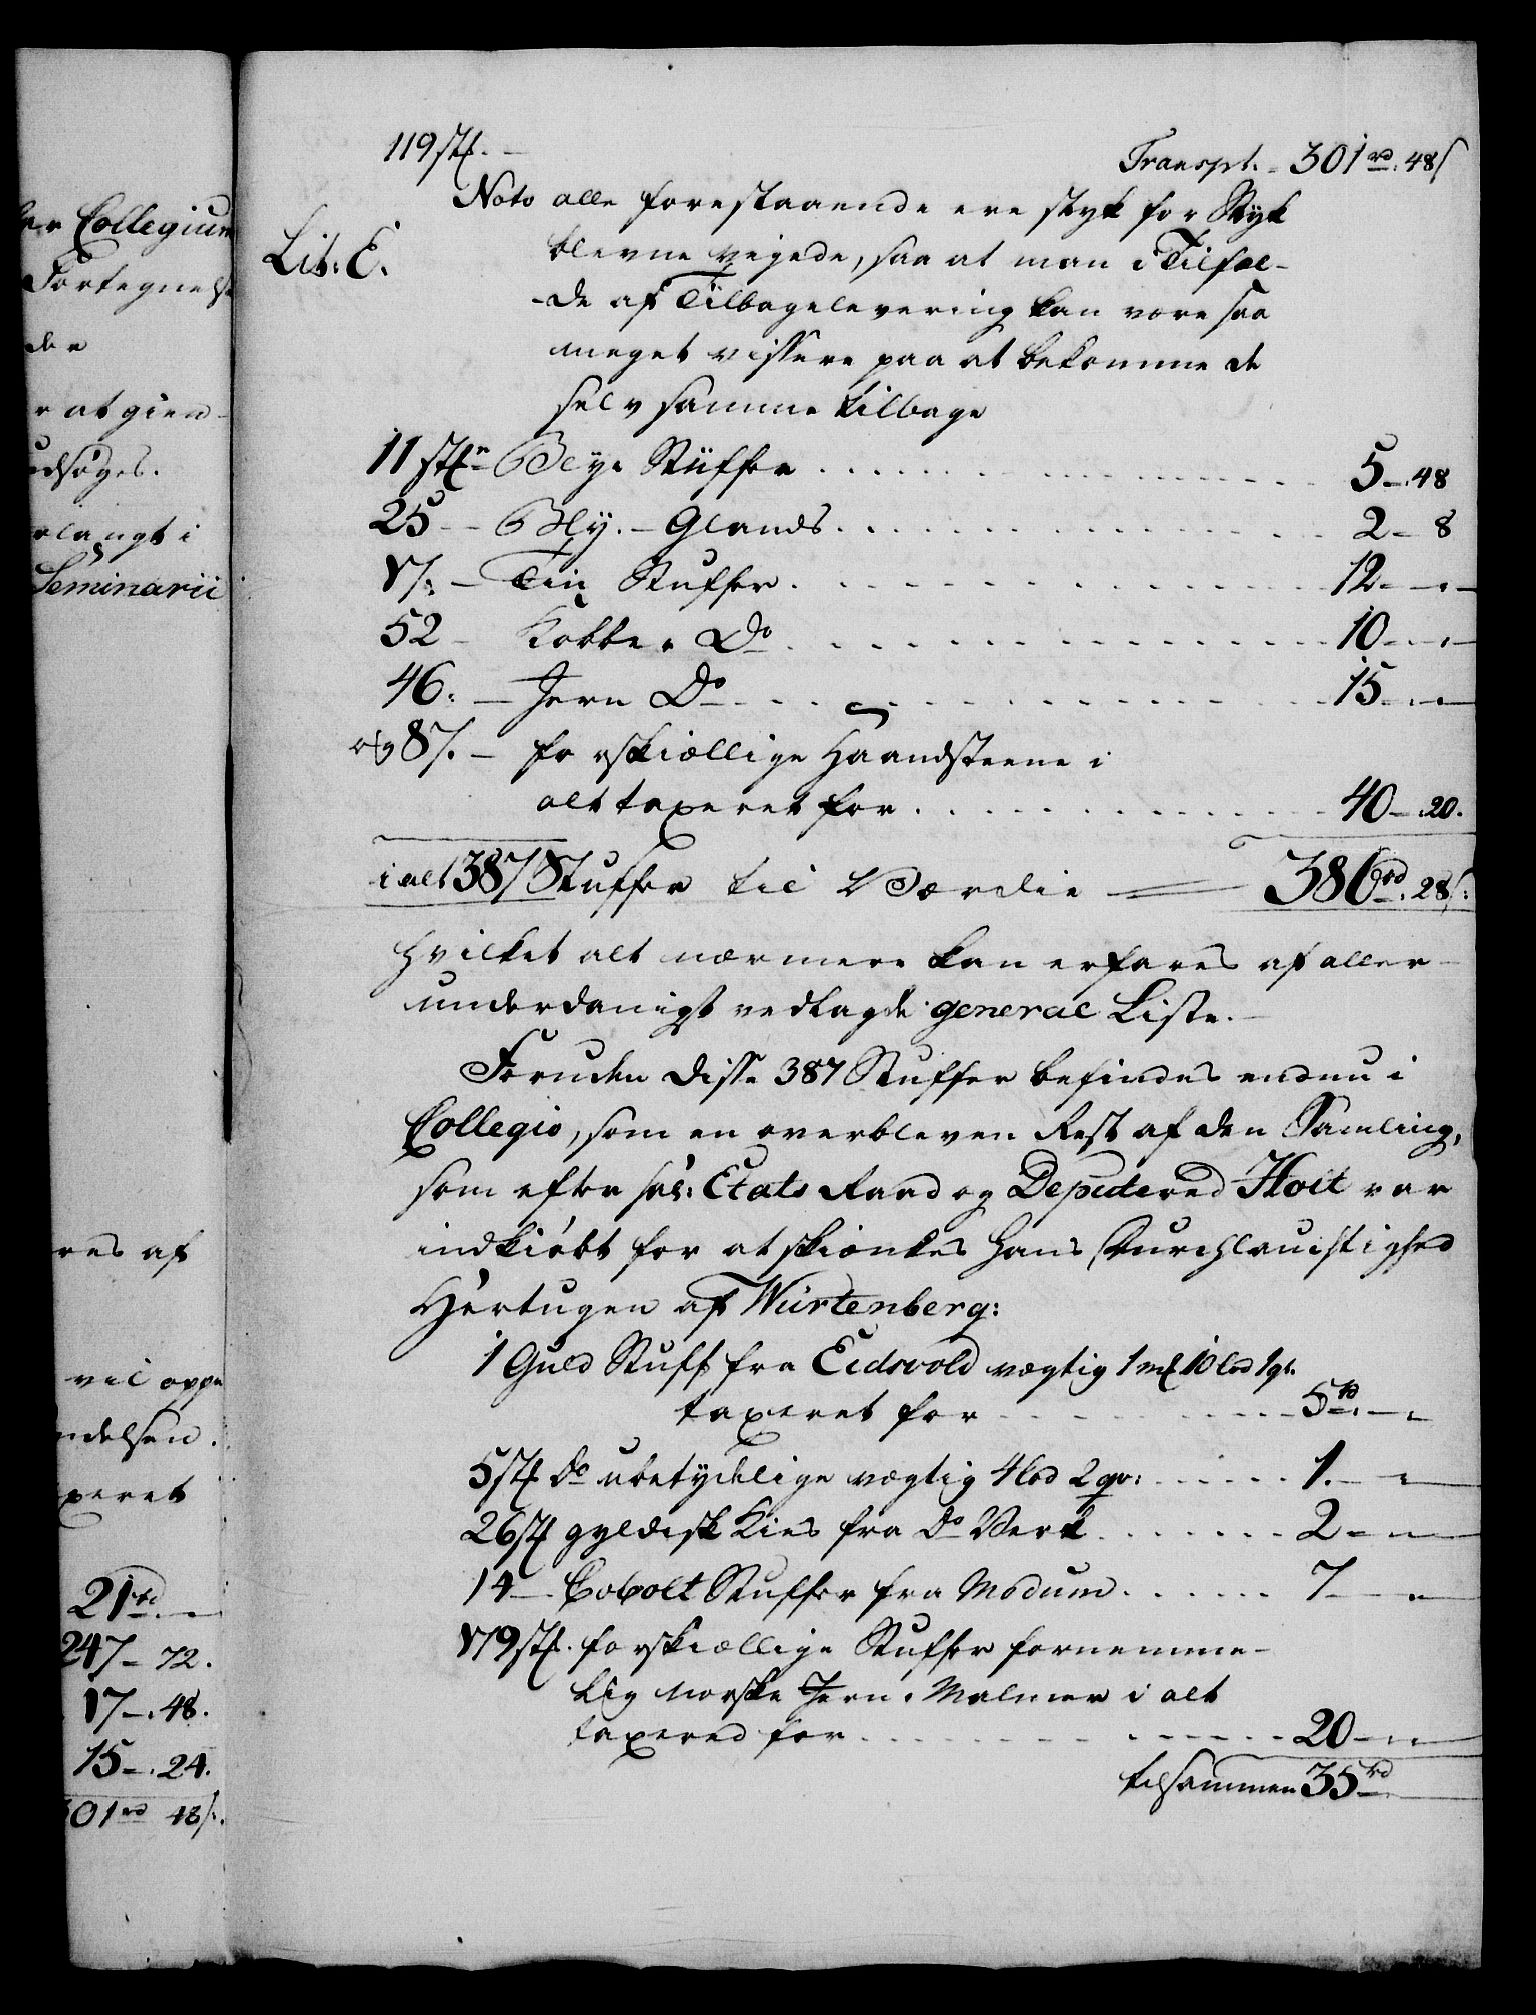 119 stk. -
Transpt. - 301 rd. 48 s
Lit: E.
Nota alle forestaaende ere styk for Styk
blevne vejede, saa at man i Tilfæl-
-de af Tilbagelevering kan være saa
meget vissere paa at bekomme de
selv samme tilbage
11 stkr Blye Stüffer . . . . 5 - 48
25 - Bly. - Glands . . . . 2 - 8
47: - Tin Stuffer . . . . 12 - -
52 - Kobber Do . . . . 10 - -
46: - Jern Do . . . . 15 - -
og 87. - forskiællige Haandsteene i
alt taxeret for . . . . 40 - 20.
i alt 387 Stuffer til Værdie = 386 rd. 28 s:
hvilket alt nærmere kan erfares af aller-
underdanigst vedlagde general Liste. -
Foruden disse 387 Stuffer befindes endnu i
Collegio, som en overbleven Rest af den Samling,
som efter sal: Etats Raad og Deputered Holt var
indkiöbt for at skiænkes Hans Durchlauchtighed
Hertugen af Würtenberg:
1 Guld Stuff fra Eidsvold vægtig 1 mk 10 lod 1 qv.
taxeret for - - - 5 rd. -
5 stk Do ubetydelige vægtig 4 lod 2 qv: . . . . 1. -
26 stk gyldisk Kies fra Do Verk . . . . 2 - -
14 - Cobolt Stuffer fra Modum . . . . 7 -
179 stk. forskiællige Stuffer fornemme-
lig norske Jern - Malmer i alt
taxered for . . . . 20 - -
tilsammen 35 rd
Collegium
Fortegnelse
der
at gien-
udsøges.
rlangt i
Seminarii
res af
vil
ndelsen.
xeret
21 rd. -
247 - 72.
17 - 48.
15 - 24.
301 rd 48 s.